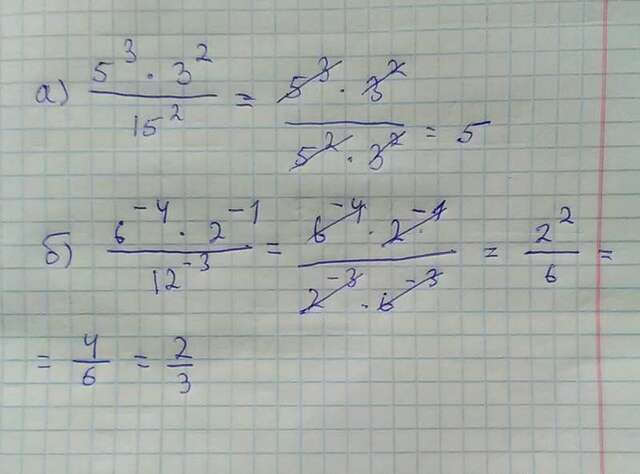 а) 5³ · 3² / 15² = 5³ · 3² / 5² · 3² = 5
б) 6⁻⁴ · 2⁻¹ / 12⁻³ = 6⁻⁴ · 2⁻¹ / 2⁻³ · 6⁻³ = 2² / 6 =
= 4/6 = 2/3